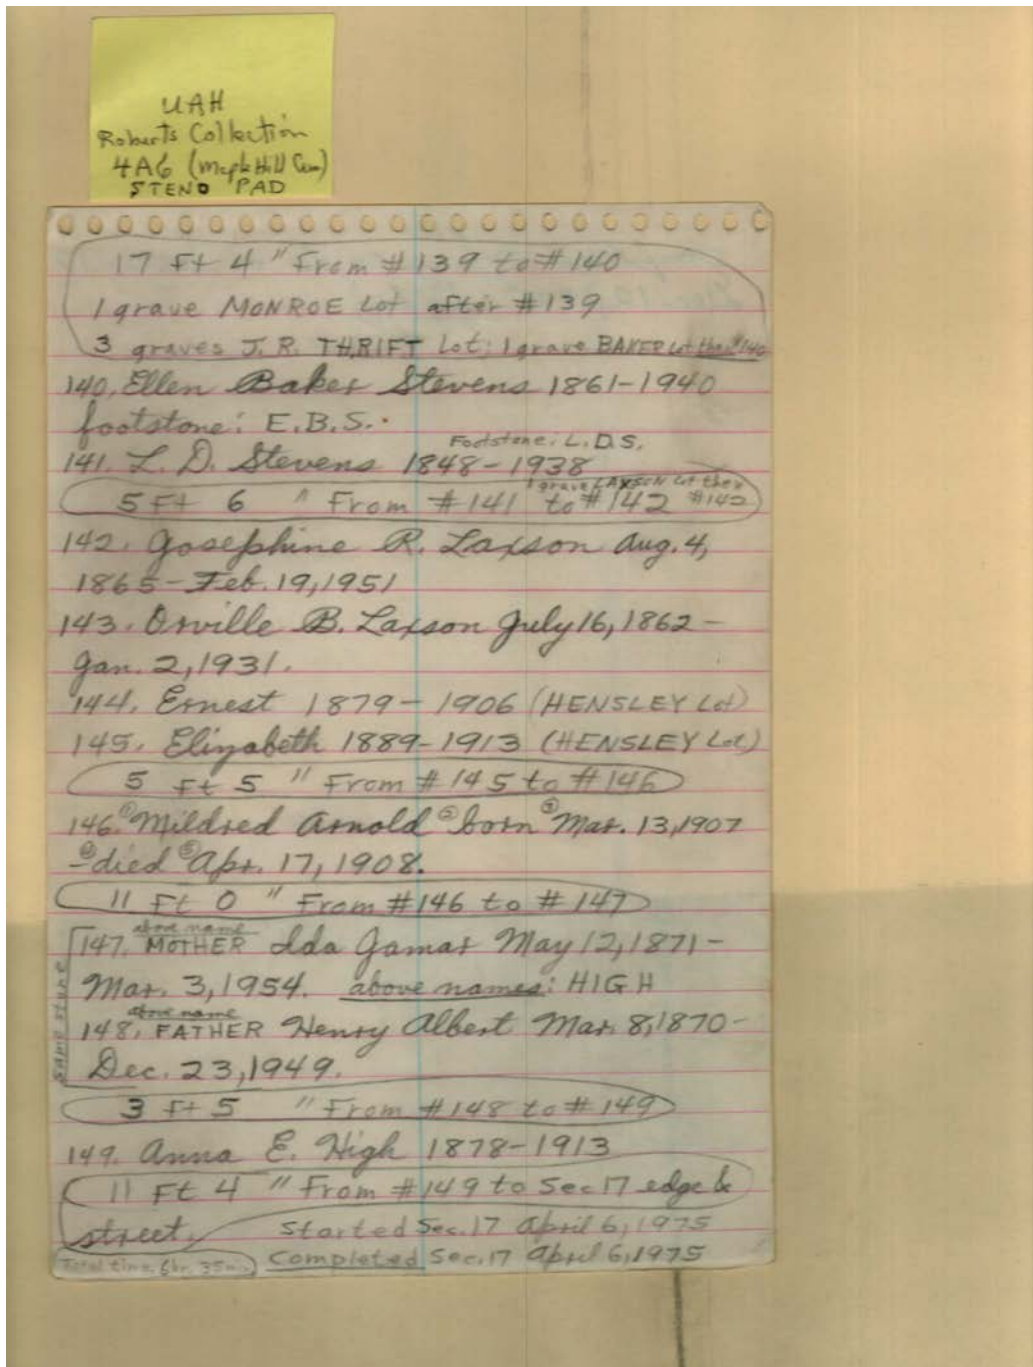 UAH
Roberts Collection
4A6 (Maple Hill Cem)
STENO PAD
17 Ft 4 " From #139 to #140
1 grave MONROE Lot after #139
3 graves J. R. THRIFT Lot; 1 grave BAKER Lot then #140
140. Ellen Baker Stevens 1861-1940
footstone: E.B.S.
Footstone: L.D.S.
141. L. D. Stevens 1848-1938
1 grave LAXSON Lot then #142
5 Ft 6 " From #141 to #142
142. Josephine R. Laxson Aug. 4,
1865-Feb. 19, 1951
143. Orville B. Laxson July 16, 1862-
Jan. 2, 1931.
144. Ernest 1879-1906 (HENSLEY Lot)
145. Elizabeth 1889-1913 (HENSLEY Lot)
5 Ft 5 " From #145 to #146
146. ① Mildred Arnold ② born ③ Mar. 13, 1907
④ -died ⑤ Apr. 17, 1908.
11 Ft 0 " From #146 to #147
above name
147. MOTHER Ida Jamar May 12, 1871-
Mar. 3, 1954. above names: HIGH
above name
148. FATHER Henry Albert Mar. 8, 1870-
Dec. 23, 1949.
same stone
3 Ft 5 " From #148 to #149
149. Anna E. High 1878-1913
11 Ft 4 " From #149 to Sec 17 edge &
street.
Started Sec. 17 April 6, 1975
Completed Sec. 17 April 6, 1975
Total time. 6hr. 35m.